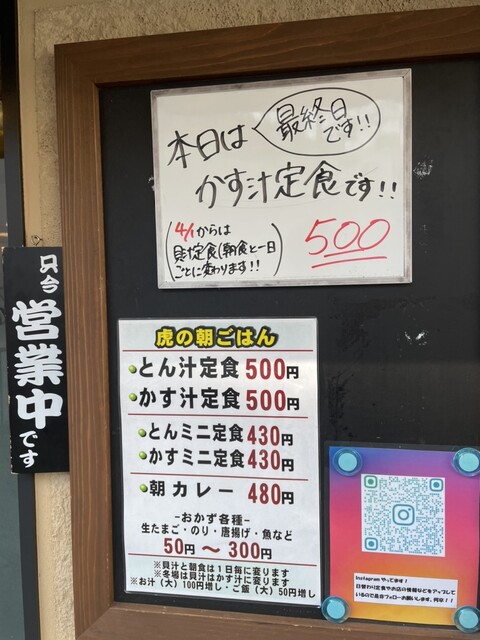 本日は
最終日
です!!
かす汁定食です!!
4/1からは
貝汁定食(朝食と一日
ごとに変わります!!
500
只今
営業中
です
虎の朝ごはん
とん汁定食 500円
かす汁定食 500円
とんミニ定食 430円
かすミニ定食 430円
朝カレー 480円
-おかず各種-
生たまご・のり・唐揚げ・魚など
50円 ～ 300円
※貝汁と朝食は1日毎に変ります
※冬場は貝汁はかす汁に変ります
※お汁(大)100円増し・ご飯(大)50円増し
Instagramやってます!
日替わり定食やお店の情報などをアップして
いるので是非フォローお願いします。何卒!!